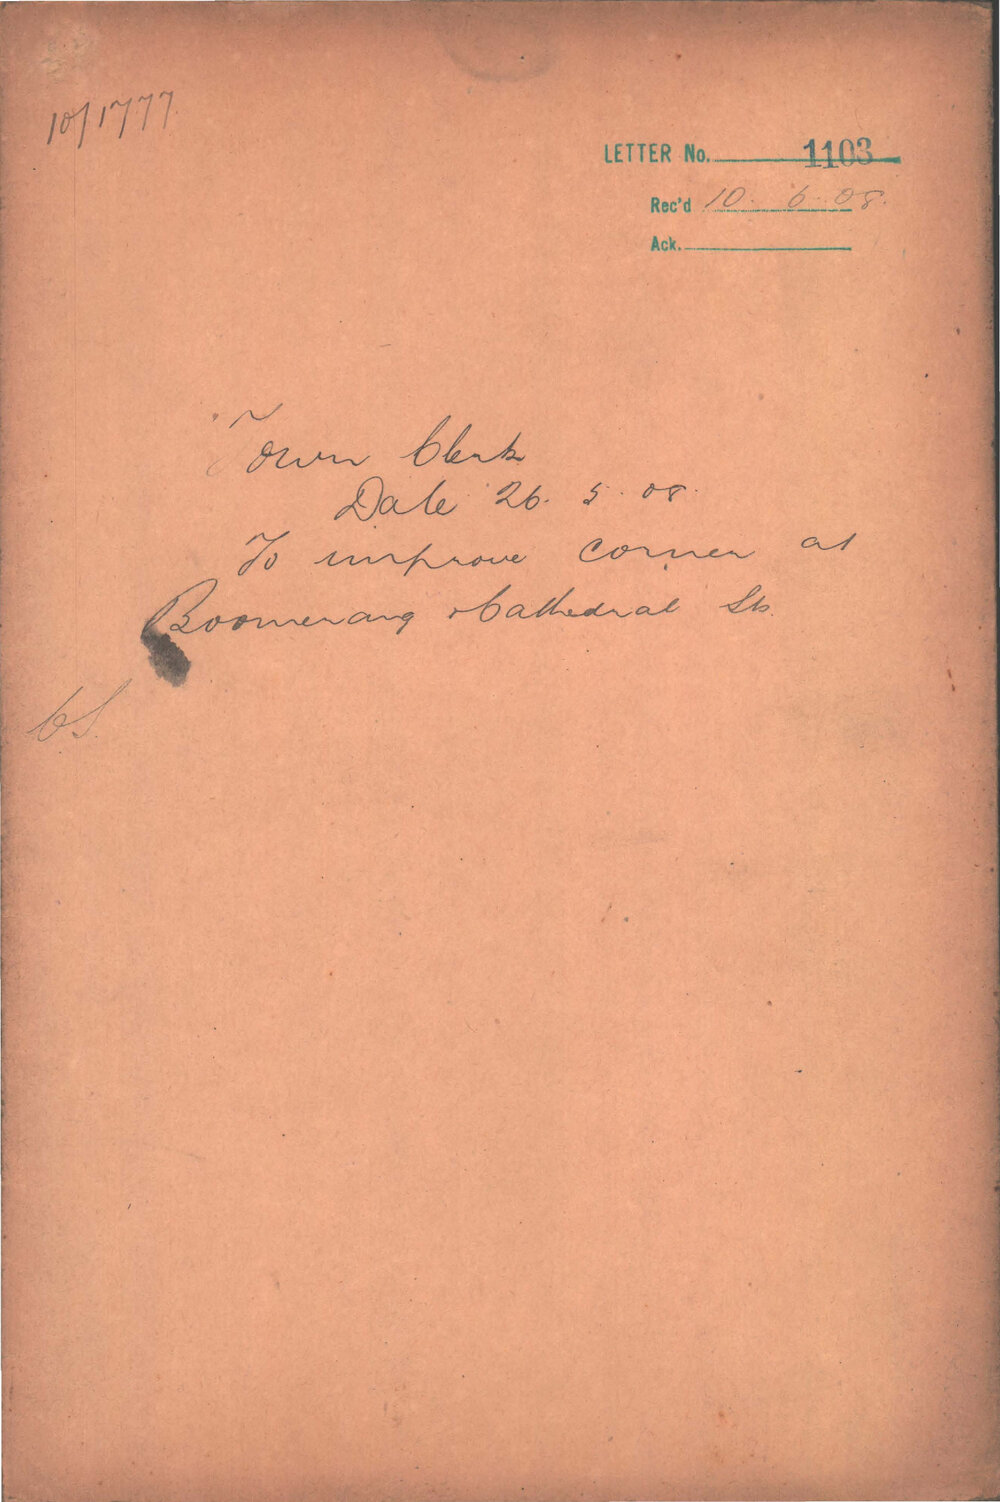 10/1777
LETTER No. 1103
Rec'd 10. 6. 08.
Ack.
Town Clerk
Date 26. 5. 08.
To improve corner at
Boomerang & Cathedral Sts.
CS.